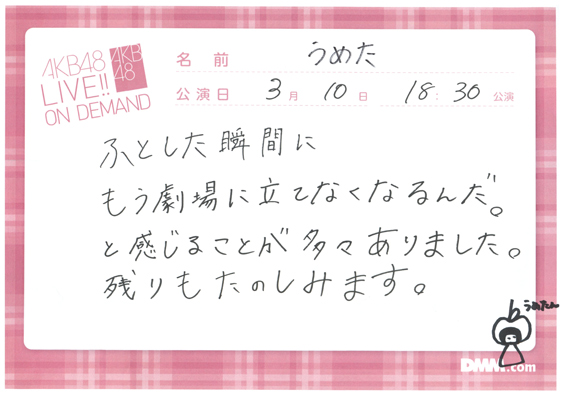 AKB48
LIVE!!
ON DEMAND
AKB
48
名前 うめた
公演日 3月10日 18:30公演
ふとした瞬間に
もう劇場に立てなくなるんだ。
と感じることが多々ありました。
残りもたのしみます。
うめたん
DMM.com